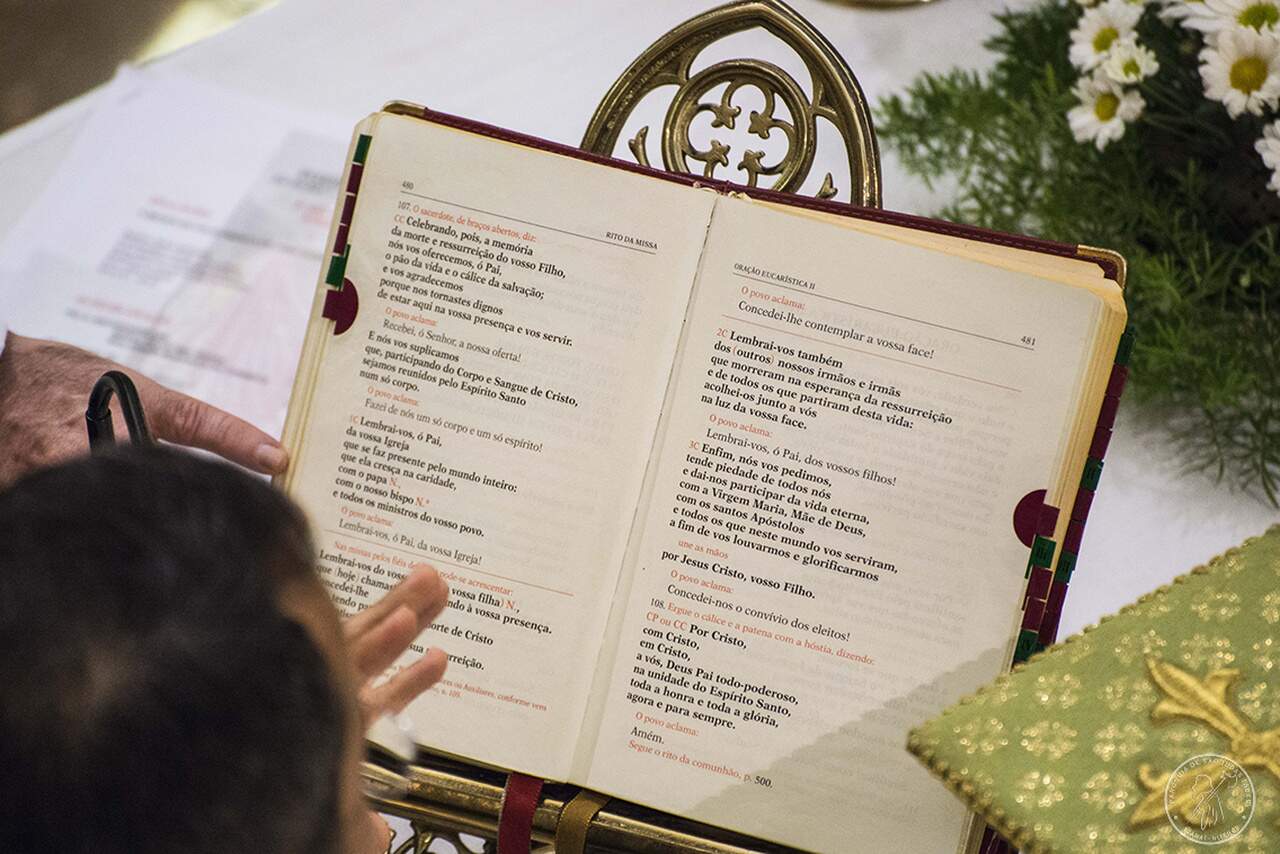 480
RITO DA MISSA
107. O sacerdote, de braços abertos, diz:
CC Celebrando, pois, a memória
da morte e ressurreição do vosso Filho,
nós vos oferecemos, ó Pai,
o pão da vida e o cálice da salvação;
e vos agradecemos
porque nos tornastes dignos
de estar aqui na vossa presença e vos servir.
O povo aclama:
Recebei, ó Senhor, a nossa oferta!
E nós vos suplicamos
que, participando do Corpo e Sangue de Cristo,
sejamos reunidos pelo Espírito Santo
num só corpo.
O povo aclama:
Fazei de nós um só corpo e um só espírito!
1C Lembrai-vos, ó Pai,
da vossa Igreja
que se faz presente pelo mundo inteiro:
que ela cresça na caridade,
com o papa N.,
com o nosso bispo N.*
e todos os ministros do vosso povo.
O povo aclama:
Lembrai-vos, ó Pai, da vossa Igreja!
Nas missas pelos fiéis pode-se acrescentar:
Lembrai-vos do vossa filha) N.,
que (hoje) à vossa presença.
morte de Cristo
ressurreição.
ou Auxiliares, conforme vem
n. 109.
ORAÇÃO EUCARÍSTICA II
481
O povo aclama:
Concedei-lhe contemplar a vossa face!
2C Lembrai-vos também
dos (outros) nossos irmãos e irmãs
que morreram na esperança da ressurreição
e de todos os que partiram desta vida:
acolhei-os junto a vós
na luz da vossa face.
O povo aclama:
Lembrai-vos, ó Pai, dos vossos filhos!
3C Enfim, nós vos pedimos,
tende piedade de todos nós
e dai-nos participar da vida eterna,
com a Virgem Maria, Mãe de Deus,
com os santos Apóstolos
e todos os que neste mundo vos serviram,
a fim de vos louvarmos e glorificarmos
une as mãos
por Jesus Cristo, vosso Filho.
O povo aclama:
Concedei-nos o convívio dos eleitos!
108. Ergue o cálice e a patena com a hóstia, dizendo:
CP ou CC Por Cristo,
com Cristo,
em Cristo,
a vós, Deus Pai todo-poderoso,
na unidade do Espírito Santo,
toda a honra e toda a glória,
agora e para sempre.
O povo aclama:
Amém.
Segue o rito da comunhão, p. 500.